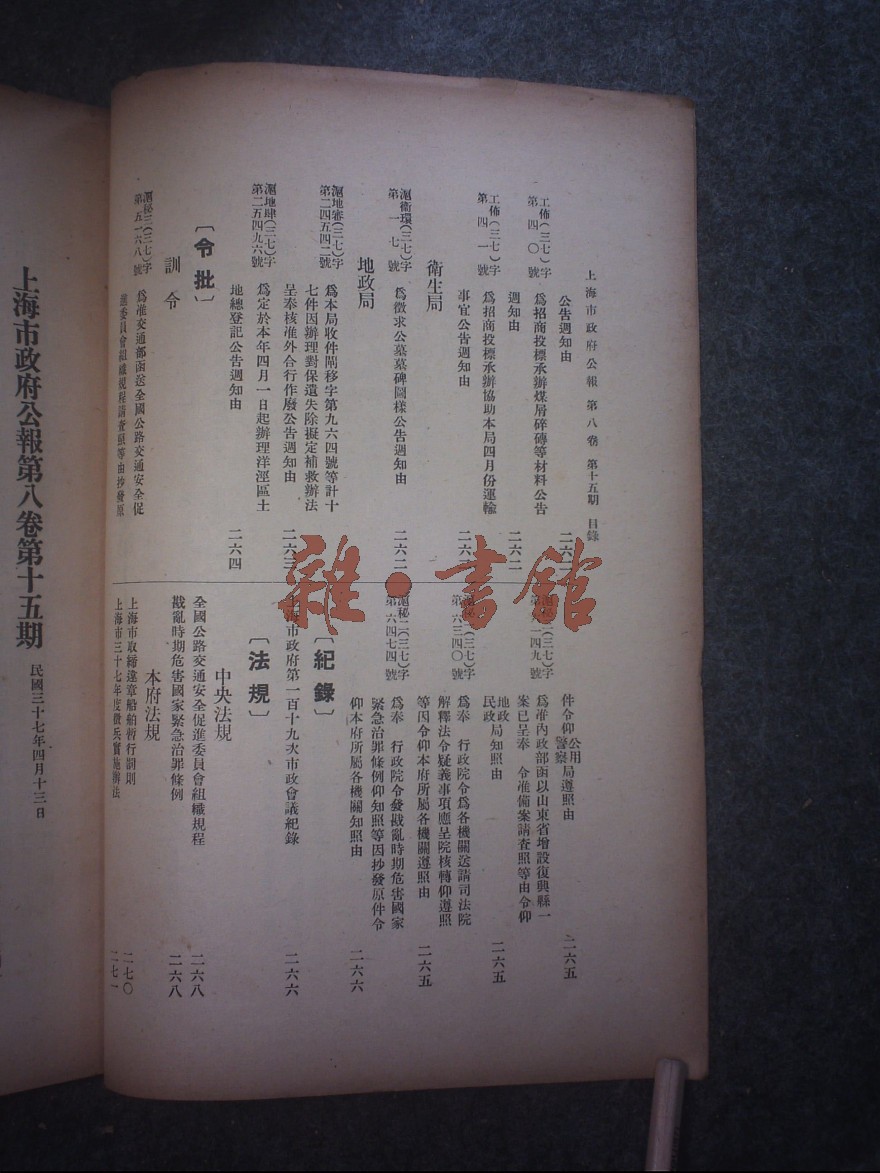 上海市政府公報 第八卷 第十五期 目錄
公告週知由
工佈(三七)字
第四〇號
爲招商投標承辦煤屑碎磚等材料公告
週知由
二六二
工佈(三七)字
第四一號
爲招商投標承辦協助本局四月份運輸
事宜公告週知由
衛生局
滬衛環(三七)字
第一七號
爲徵求公墓墓碑圖樣公告週知由
二六二
地政局
滬地審(三七)字
第二四五四二號
爲本局收件閘移字第九六四號等計十
七件因辦理對保遺失除擬定補救辦法
呈奉核准外合行作廢公告週知由
二六三
滬地肆(三七)字
第二五四九六號
爲定於本年四月一日起辦理洋涇區土
地總登記公告週知由
二六四
〔令批〕
訓令
滬秘三(三七)字
第五一六八號
爲准交通部函送全國公路交通安全促
進委員會組織規程請查照等由抄發原
件令仰公用警察局遵照由
二六五
爲准內政部函以山東省增設復興縣一
案已呈奉 令准備案請查照等由令仰
地政局
民政
知照由
二六五
第六三四〇號
爲奉 行政院令爲各機關送請司法院
解釋法令疑義事項應呈院核轉仰遵照
等因令仰本府所屬各機關遵照由
二六五
滬秘二(三七)字
第六四七四號
爲奉 行政院令發戡亂時期危害國家
緊急治罪條例仰知照等因抄發原件令
仰本府所屬各機關知照由
二六六
〔紀錄〕
上海市政府第一百十九次市政會議紀錄
二六六
〔法規〕
中央法規
全國公路交通安全促進委員會組織規程
二六八
戡亂時期危害國家緊急治罪條例
二六八
本府法規
上海市取締違章船舶暫行罰則
二七〇
上海市三十七年度徵兵實施辦法
二七一
上海市政府公報第八卷第十五期
民國三十七年四月十三日
雜·書館